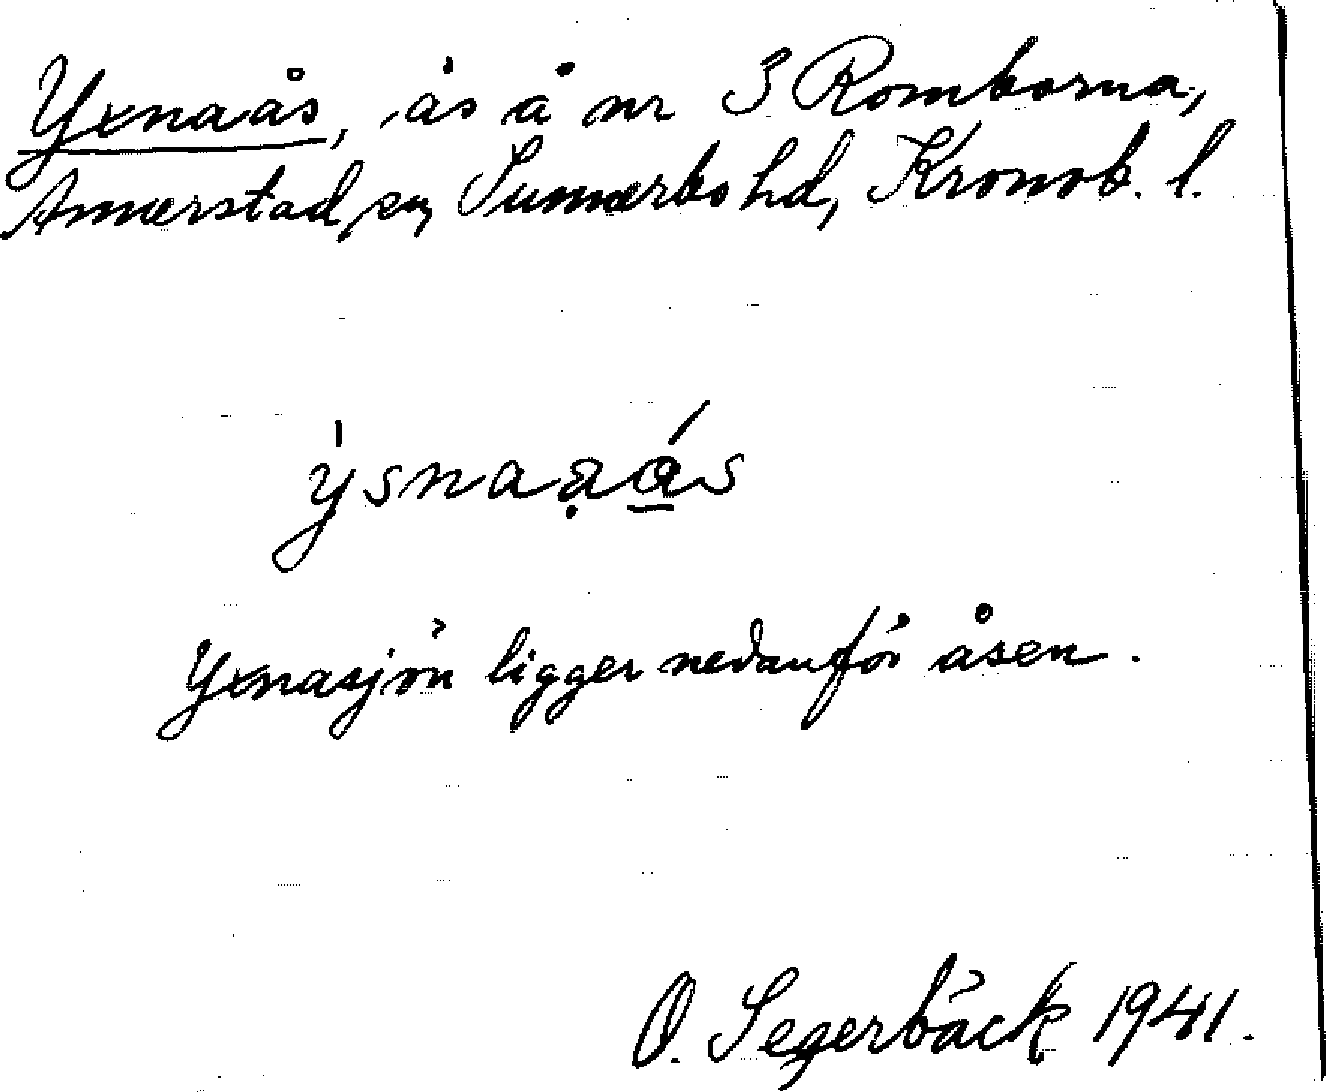 Yxnaås, ås å nr 3 Romborna,
Annerstad sn, Sunnerbo hd, Kronob. l.
Yxnasjön ligger nedanför åsen.
O. Segerbäck 1941.